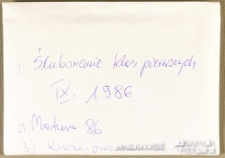 1) Ślubowanie klas pierwszych
IX. 1986
2) Matura 86
3)